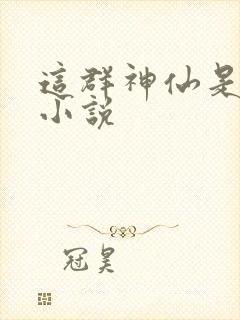 這群神仙是
小說
冠昊